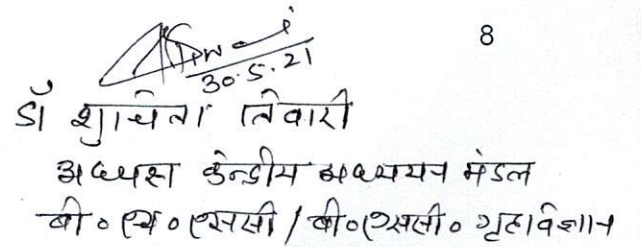 8
30.5.21
डॉ शुचिता तिवारी
अध्यक्ष केन्द्रीय अध्ययन मंडल
बी०एच०एससी / बी०एससी० गृहविज्ञान